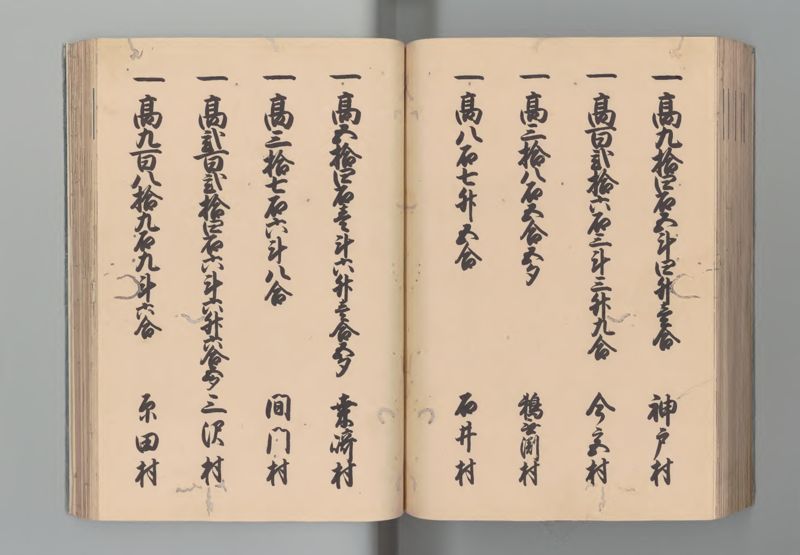 一高九拾四石五斗四升壱合 神戸村
一高百弐拾六石三斗三升九合 今宮村
一高三拾八石五合五夕 鵜無淵村
一高八石七升五合 石井村
一高五拾四石壱斗六升壱合五夕 桑崎村
一高三拾七石六斗八合 間門村
一高弐百弐拾四石六斗六升六合 三沢村
一高九百八拾九石九斗六合 原田村